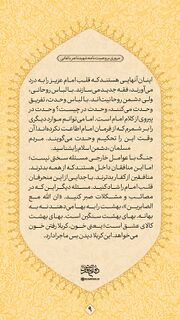 مروری بر وصیت‌نامه شهید
اینان آنهایی هستند که قلب امام عزیز را به درد
می‌آورند، فقه جدید می‌سازند. با لباس روحانی،
ولی دشمن روحانیت‌اند. با لباس وحدت، تفریق
وحدت می‌کنند، وحدت در چیست؟ وحدت در
پیروی از کلام امام است. اما می‌توانم موارد دیگری
را بر شمرم که از فرمان امام اطاعت نکرده‌اند! آن
وقت این را تحکیم وحدت می‌گویند. مردم
مسلمان، دشمن اسلام را بشناسید.
جنگ با عوامل خارجی مسئله سختی نیست؛
اما این منافقان داخل هستند که از همه بدترند.
منافقین از کفار بدترند. با جدایی از این منحرفان
قلب امام را شاد کنید. مسئله دیگر این که در
مصائب و مشکلات صبر کنید. «ان الله مع
الصابرین». بهشت را به بها می‌دهند نه به
بهانه. بهای بهشت سنگین است. بهای بهشت
کالای عشق است؛ یعنی خون. کربلا رفتن خون
می‌خواهد. این کربلا دیدن بس ماجرا دارد.
۹